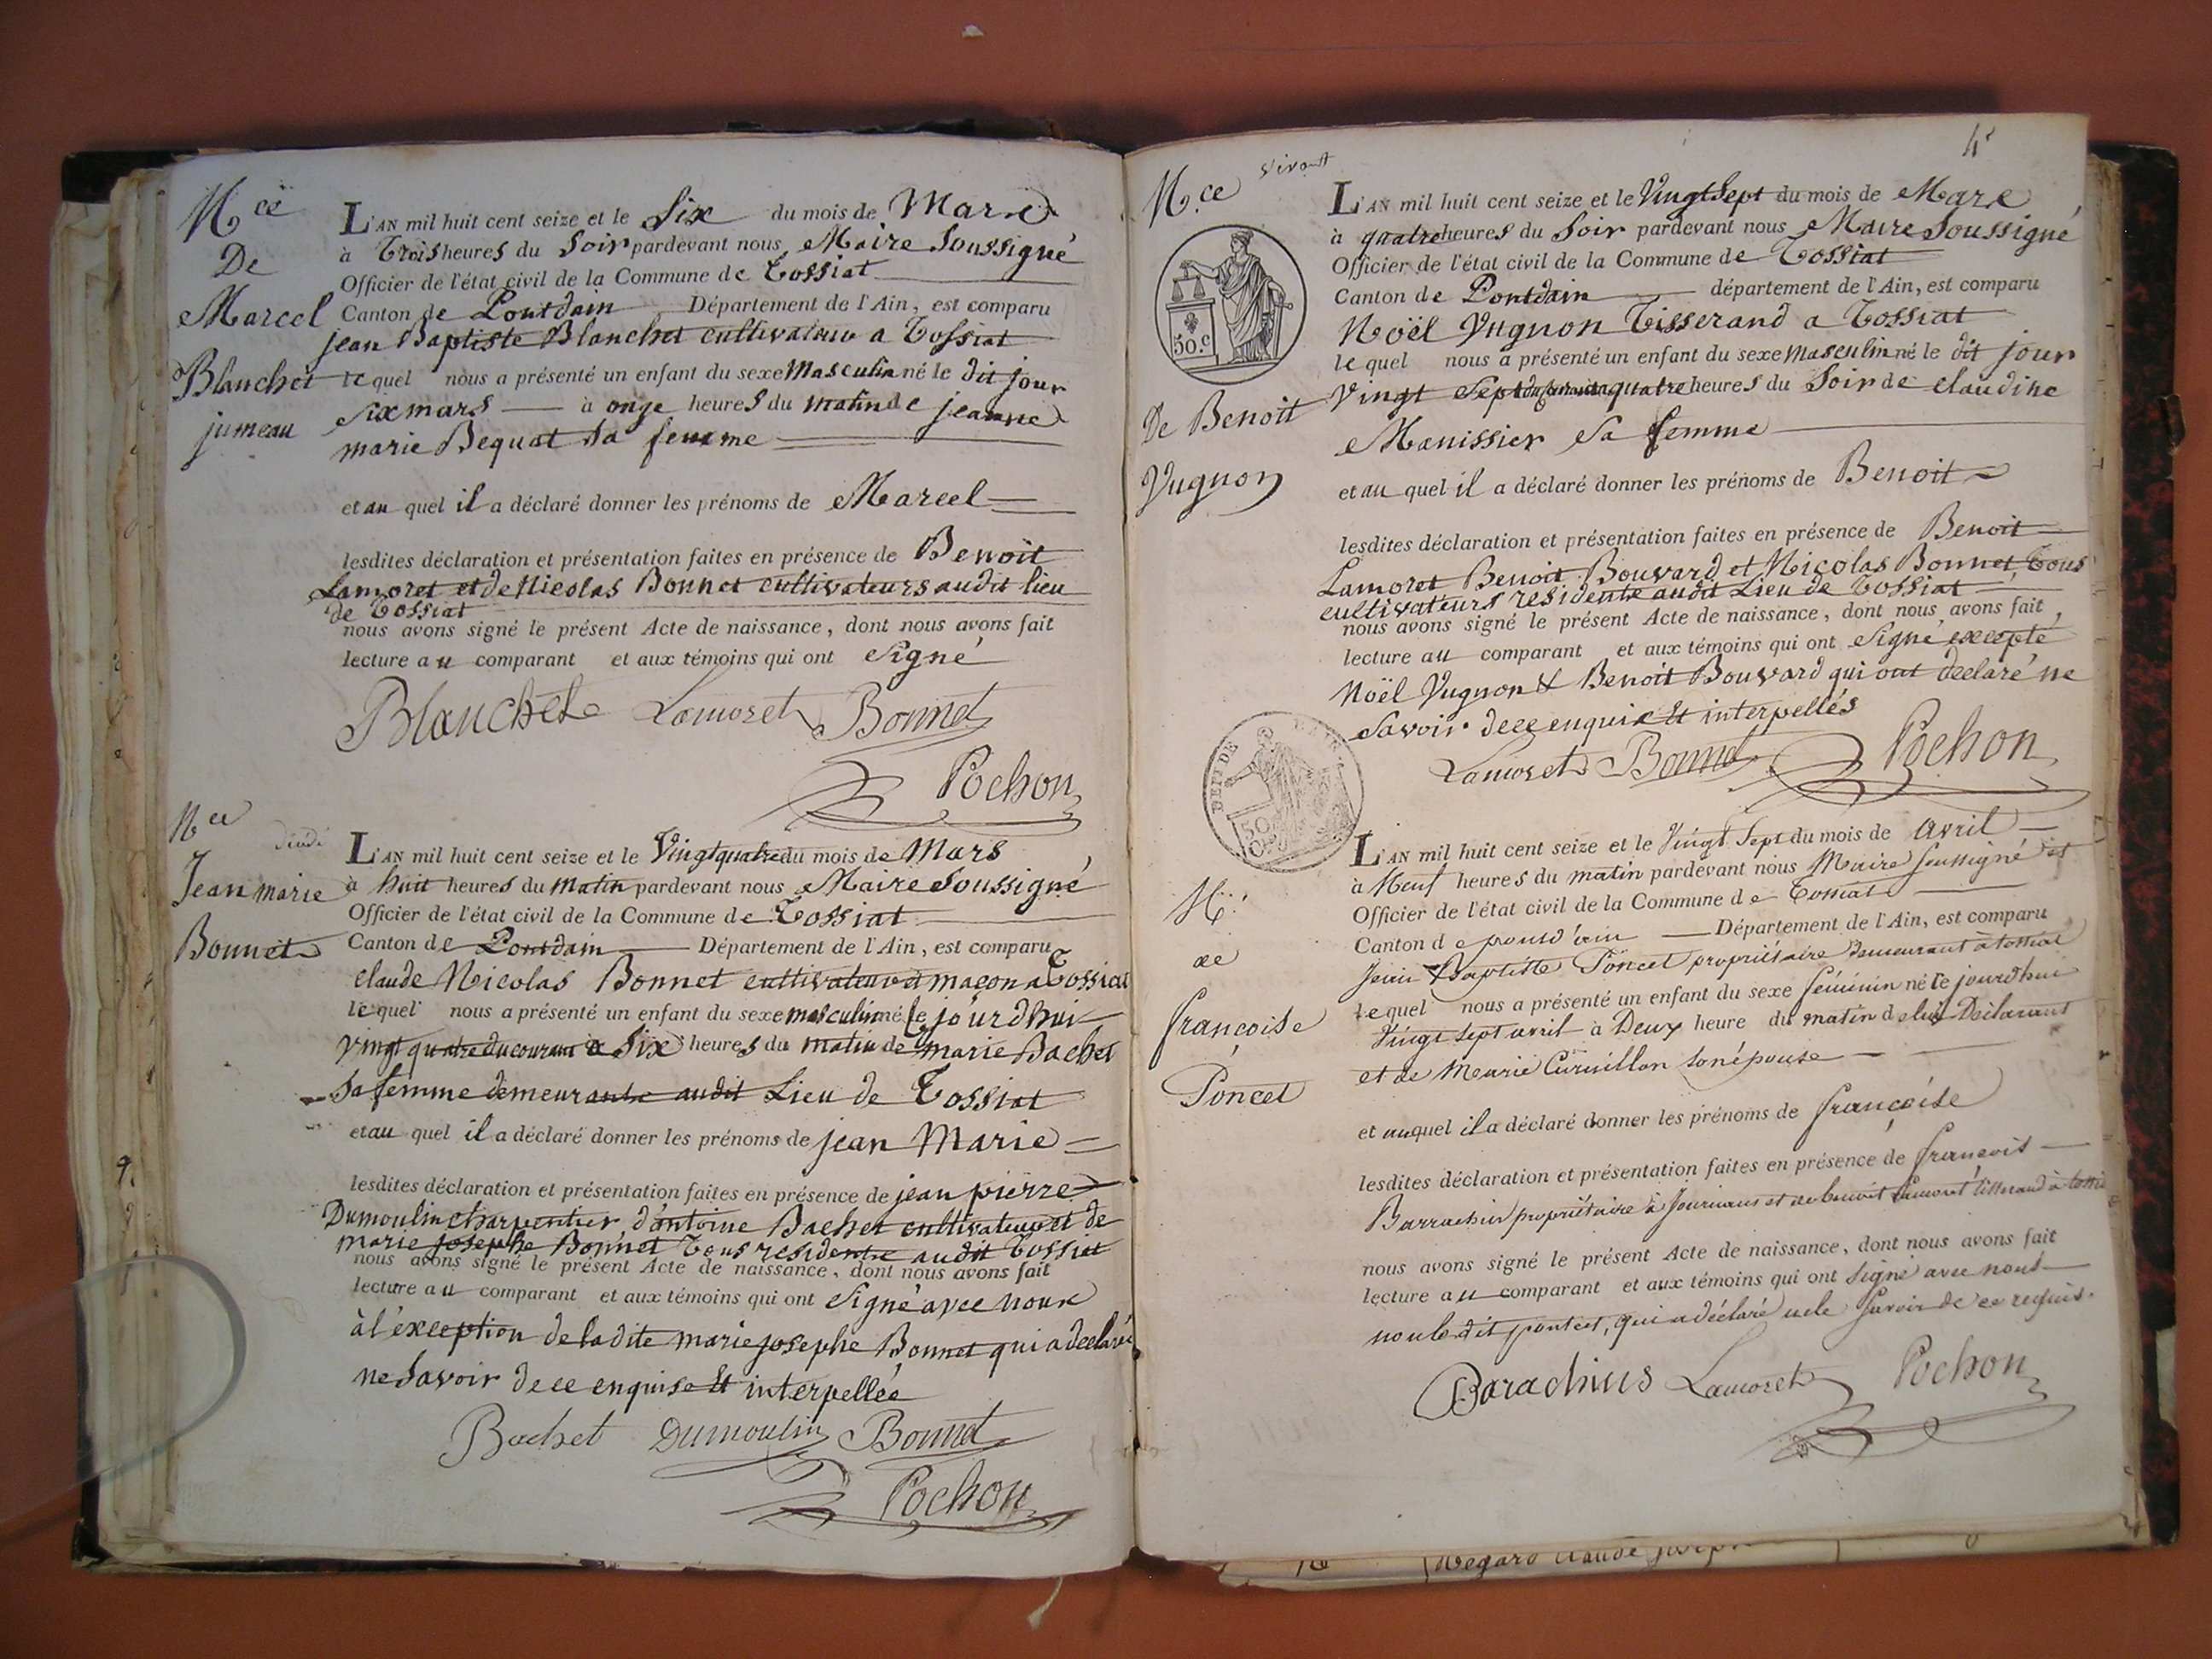 N.ce
De
Marcel
Blanchet
jumeau
L'AN mil huit cent seize et le Six du mois de Mars
à Trois heures du Soir pardevant nous Maire Soussigné
Officier de l'état civil de la Commune de Tossiat
Canton de Pontdain Département de l'Ain, est comparu
jean Baptiste Blanchet cultivateur a Tossiat
lequel nous a présenté un enfant du sexe Masculin né le dit jour
Six mars à onze heures du matin de jeanne
marie Bequat Sa femme
et au quel il a déclaré donner les prénoms de Marcel
lesdites déclaration et présentation faites en présence de Benoit
Lamoret et de Nicolas Bonnet cultivateurs audit lieu
de Tossiat
nous avons signé le présent Acte de naissance, dont nous avons fait
lecture au comparant et aux témoins qui ont Signé
Blanchet Lamoret Bonnet
Pochon
N.ce
Jean marie
Bonnet
L'AN mil huit cent seize et le Vingtquatre du mois de Mars
à huit heures du matin pardevant nous Maire Soussigné
Officier de l'état civil de la Commune de Tossiat
Canton de Pontdain Département de l'Ain, est comparu
claude Nicolas Bonnet cultivateur et maçon a Tossiat
lequel nous a présenté un enfant du sexe masculin né le jourdhui
vingt quatre du courant a Six heures du matin de marie Bachet
Sa femme demeurante audit Lieu de Tossiat
et au quel il a déclaré donner les prénoms de jean Marie
lesdites déclaration et présentation faites en présence de jean pierre
Dumoulin charpentier d'antoine Bachet cultivateur et de
marie josephe Bonnet Tous residents audit Tossiat
nous avons signé le présent Acte de naissance, dont nous avons fait
lecture au comparant et aux témoins qui ont Signé avec nous
à l'éxception de ladite marie josephe Bonnet qui a declaré
ne Savoir de ce enquise Et interpellée
Bachet Dumoulin Bonnet
Pochon
4
N.ce vivant
50.c
De Benoit
Vugnon
L'AN mil huit cent seize et le VingtSept du mois de Mars
à quatre heures du Soir pardevant nous Maire Soussigné
Officier de l'état civil de la Commune de Tossiat
Canton de Pontdain département de l'Ain, est comparu
Noël Vugnon Tisserand a Tossiat
lequel nous a présenté un enfant du sexe Masculin né le dit jour
Vingt Sept quatre heures du Soir de claudine
Manissier Sa femme
et au quel il a déclaré donner les prénoms de Benoit
lesdites déclaration et présentation faites en présence de Benoit
Lamoret Benoit Bouvard et Nicolas Bonnet Tous
cultivateurs residents audit Lieu de Tossiat
nous avons signé le présent Acte de naissance, dont nous avons fait
lecture au comparant et aux témoins qui ont Signé excepté
Noël Vugnon & Benoit Bouvard qui ont declaré ne
Savoir de ce enquis Et interpellés
Lamoret Bonnet Pochon
N.
de
françoise
Poncet
L'AN mil huit cent seize et le Vingt Sept du mois de avril
à Neuf heures du matin pardevant nous Maire soussigné et
Officier de l'état civil de la Commune de Tossiat
Canton de pont d'ain Département de l'Ain, est comparu
Jean Baptiste Poncet propriétaire demeurant à tossiat
lequel nous a présenté un enfant du sexe féminin né le jourdhui
Vingt Sept avril à Deux heure du matin de lui Déclarant
et de Marie Curnillon son épouse
et auquel il a déclaré donner les prénoms de françoise
lesdites déclaration et présentation faites en présence de françois
Barrachin propriétaire à Journans et de benoit Lamoret tisserand à tossiat
nous avons signé le présent Acte de naissance, dont nous avons fait
lecture au comparant et aux témoins qui ont signé avec nous
non le dit poncet, qui a déclaré ne le savoir de ce requis.
Barachins Lamoret Pochon
Regard claude joseph